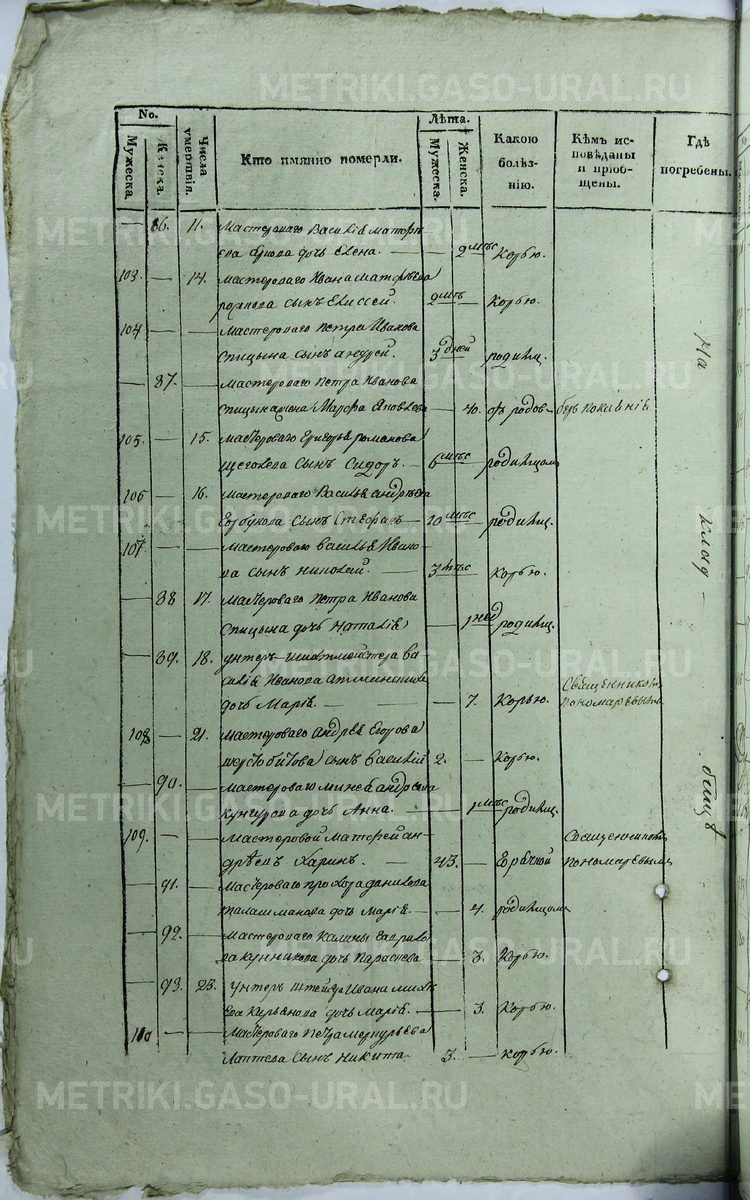 METRIKI.GASO-URAL.RU
No. Лѣта.
Мужеска. Женска. Числа умертвiя. Кто имянно померли. Мужеска. Женска. Какою болѣз-нiю. Кѣмъ ис-повѣданы и прiоб-щены. Гдѣ погребены.
— 86. 11. Мастероваго Василiя Матфѣ
ева дочь Елена. — 2 мѣс Корью.
103. — 14. Мастероваго Ивана Матфѣева
сынъ Елиссей. 2 мѣс — Корью.
104 — — Мастероваго Петра Иванова
Спицына сынъ Андрей. 3 дней — родимц.
— 87. — Мастероваго Петра Иванова
Спицына жена Марфа Яковлева — 40. родов— безъ покаянiя
105. — 15. Мастероваго Григорья Романова
Щеголева сынъ Сидоръ — 6 мѣс — родимцомъ
106 — 16. Мастероваго Василья Андрѣева
сынъ Стефанъ — 10 мѣс — родимц.
107 — — Мастероваго Василья Ивано-
ва сынъ Николай. — 3 мѣс — Корью.
— 88 17. Мастероваго Петра Иванова
Спицына дочь Наталiя — 1 нед родимц.
— 89. 18. Унтеръ-шихтмейстера Ва
силiя Иванова
дочь Марiя. — — 7. Корью. Священникомъ
Пономаревымъ
108 — 21. Мастероваго Андрея Егорова
Шерстобитова сынъ Василiй 2. — Корью.
— 90. — Мастероваго Андреева
Кунгурова дочь Анна. — — 1 мѣс родимц.
109. — — Мастеровой Матфей Ан-
дрѣевъ Харинъ. — 43. — Горячкой Священникомъ
Пономаревымъ
— 91. — Мастероваго Прохора Данилова
Талашманова дочь Марiя. — — 4. родимцомъ
— 92. — Мастероваго Калины Гаврило
ва дочь — 3. Корью.
— 93. 23. Унтеръ Ивана
дочь Марiя. — — 3. Корью.
110 — — Мастероваго Меркурьева
Лаптева сынъ Никита. 3. — Корью.
На
клад—
бищѣ